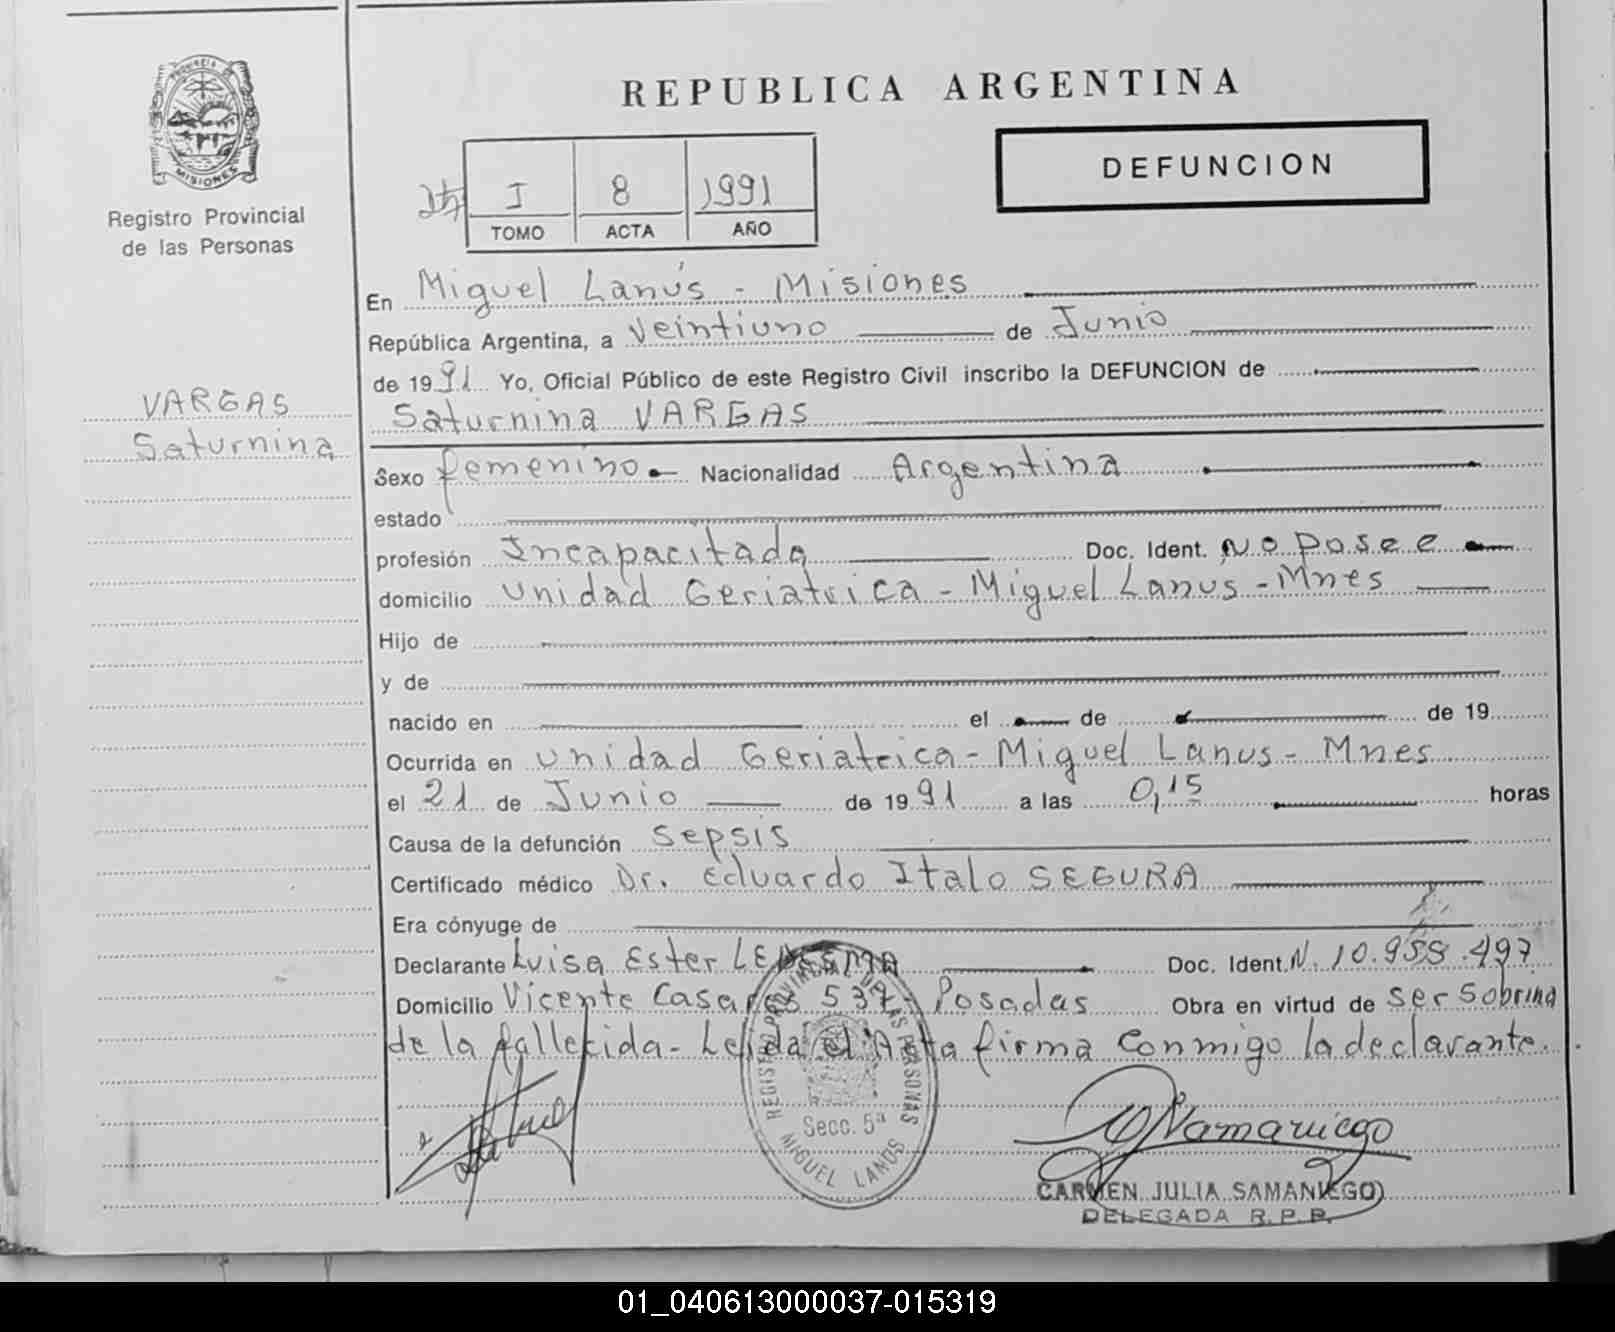 REPUBLICA ARGENTINA
PROVINCIA DE
MISIONES
Registro Provincial
de las Personas
I 8 1991
TOMO ACTA AÑO
DEFUNCION
En Miguel Lanús - Misiones
República Argentina, a Veintiuno de Junio
de 1991 Yo, Oficial Público de este Registro Civil inscribo la DEFUNCION de
Saturnina VARGAS
VARGAS
Saturnina
Sexo femenino Nacionalidad Argentina
estado
profesión Incapacitada Doc. Ident. No posee
domicilio Unidad Geriatrica - Miguel Lanus - Mnes
Hijo de
y de
nacido en el de de 19
Ocurrida en Unidad Geriatrica - Miguel Lanus - Mnes
el 21 de Junio de 1991 a las 0,15 horas
Causa de la defunción Sepsis
Certificado médico Dr. Eduardo Italo SEGURA
Era cónyuge de
Declarante Luisa Ester LEDESMA Doc. Ident. N. 10.958.497
Domicilio Vicente Casares 537 Posadas Obra en virtud de ser Sobrina
de la fallecida - Leida el Acta firma conmigo la declarante.
REGISTRO PROVINCIAL DE LAS PERSONAS
Secc. 5ª
MIGUEL LANUS
CARMEN JULIA SAMANIEGO
DELEGADA R.P.P.
01_040613000037-015319